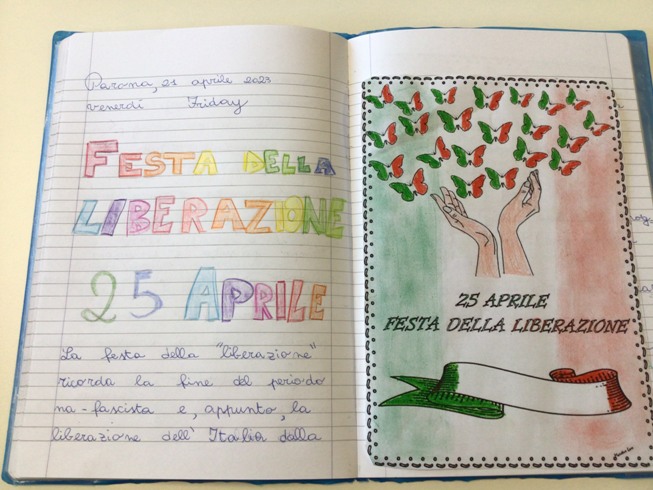 Parona, 21 aprile 2023
venerdì Friday
FESTA DELLA
LIBERAZIONE
25 APRILE
La festa della "liberazione"
ricorda la fine del periodo
na-fascista e, appunto, la
liberazione dell' Italia dalla
25 APRILE
FESTA DELLA LIBERAZIONE